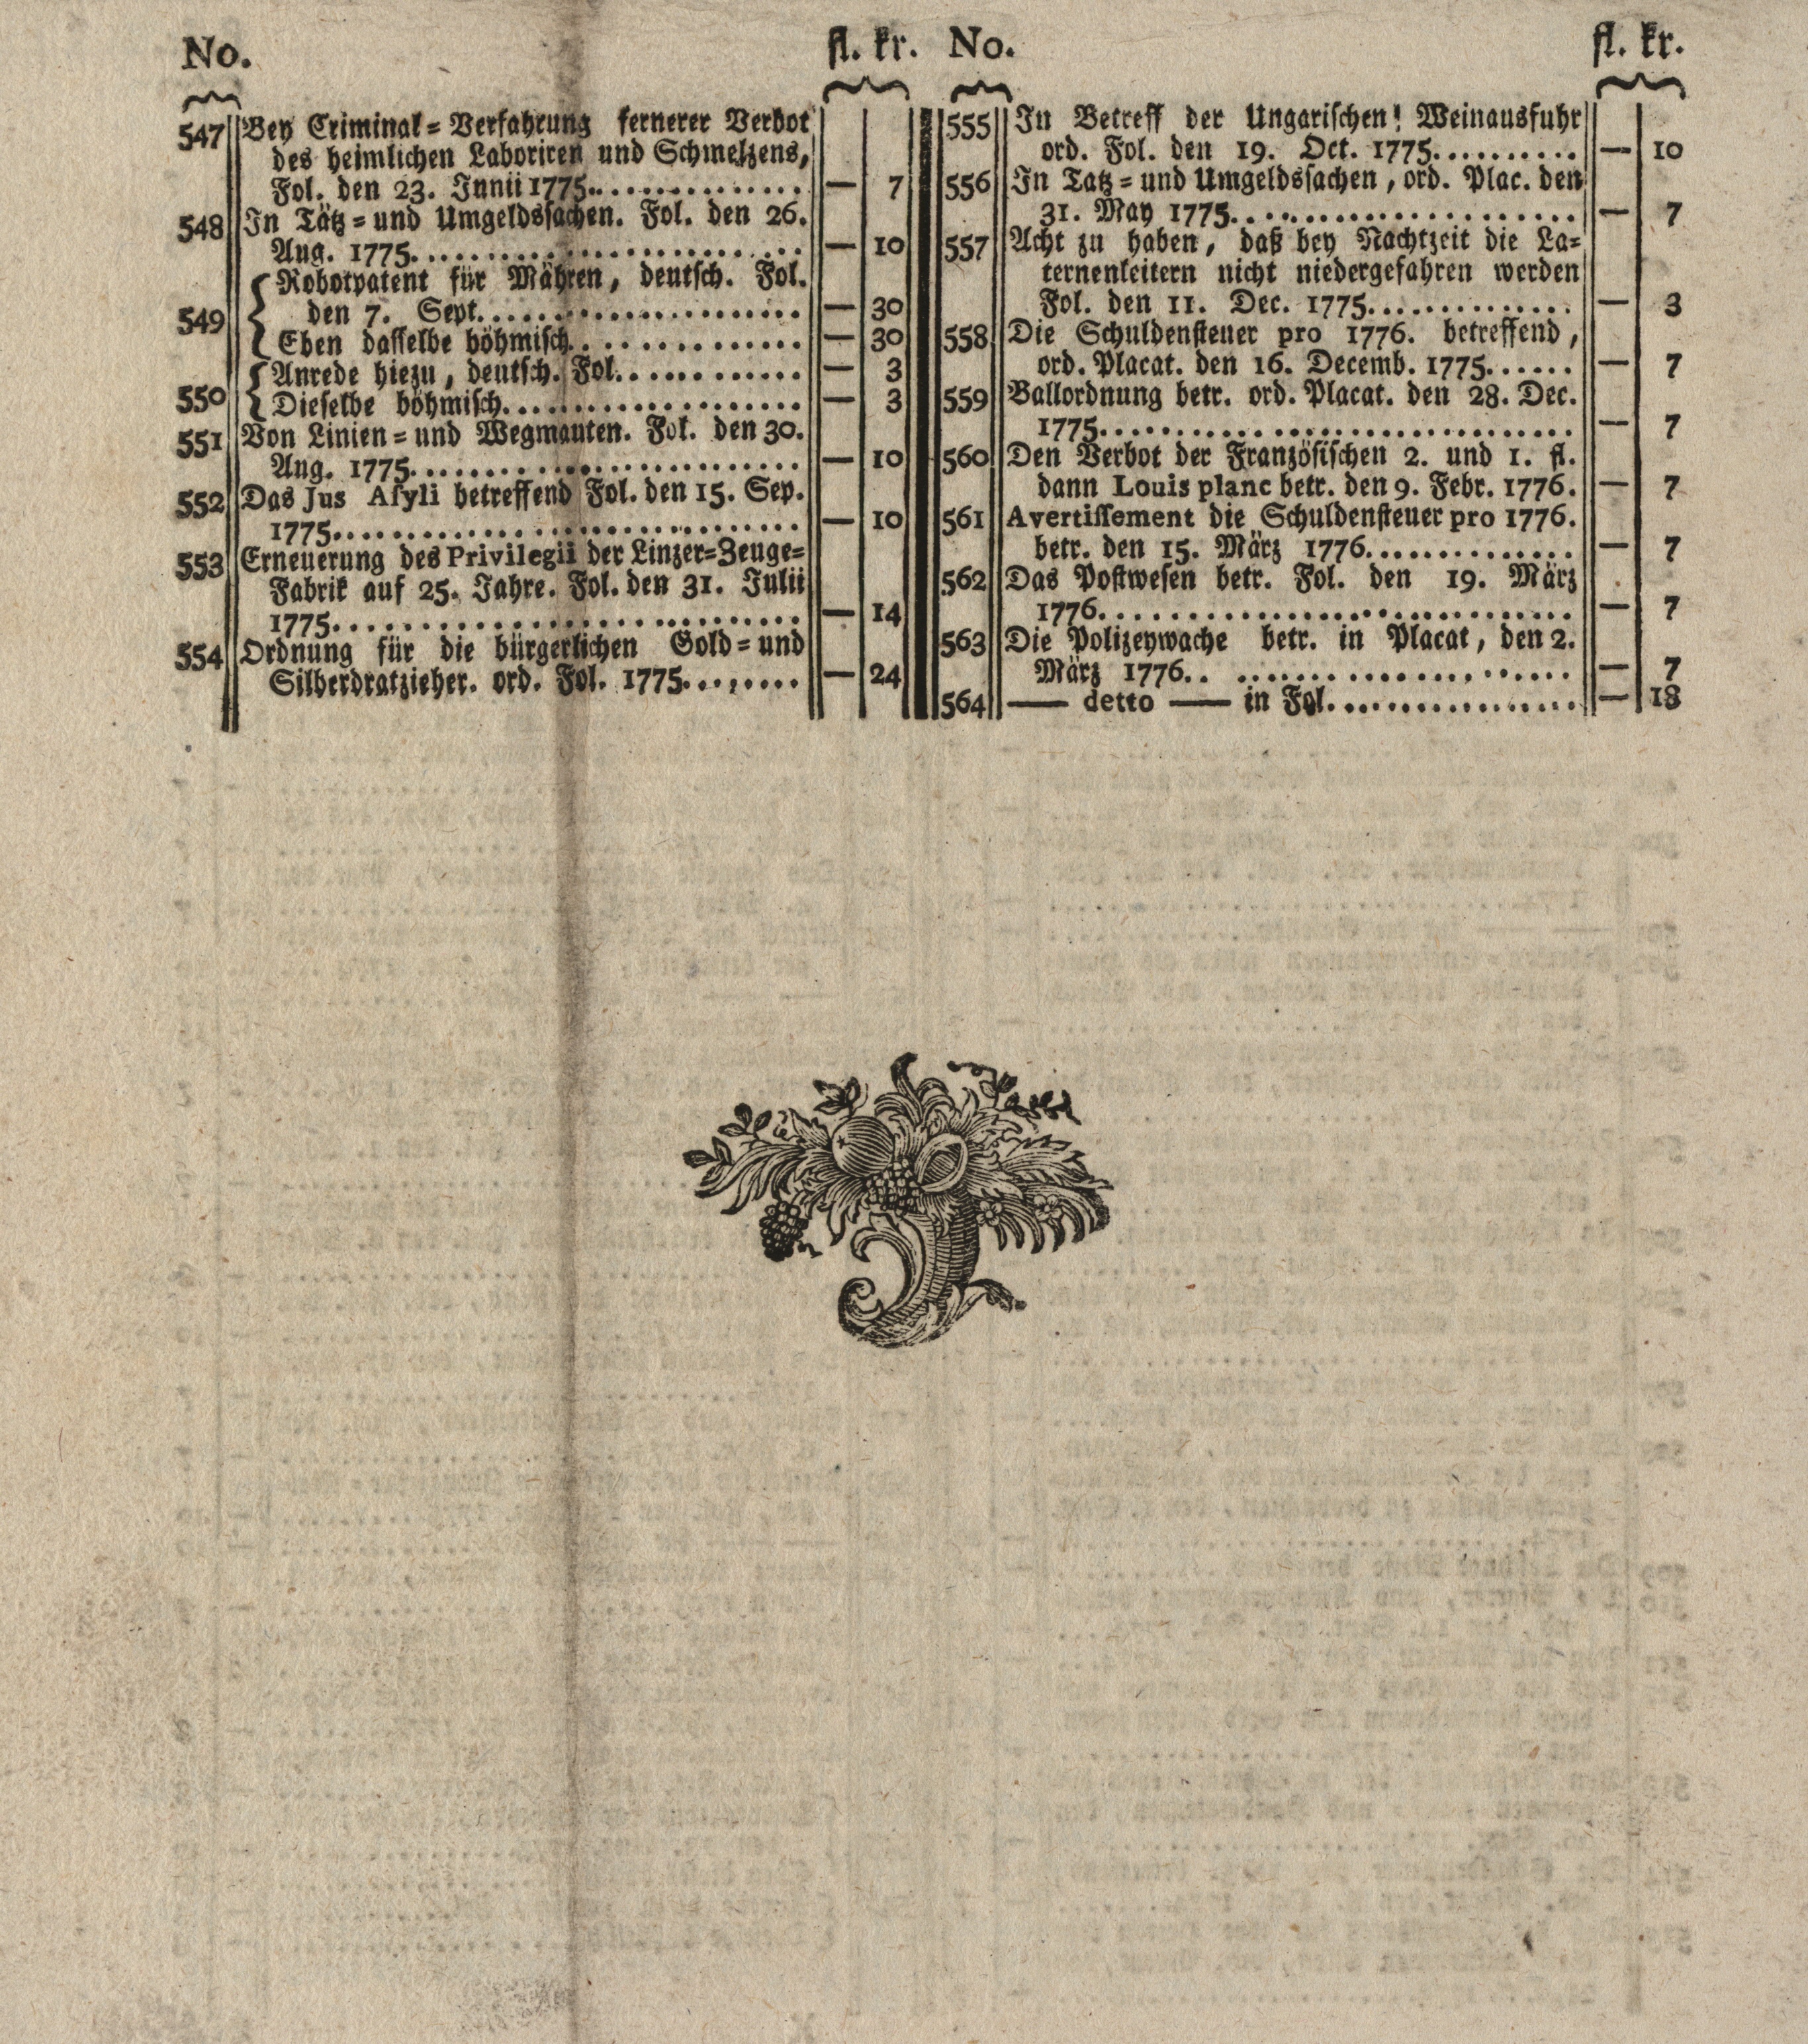 No. fl. kr.
547 Bey Criminal=Verfahrung fernerer Verbot
des heimlichen Laboriren und Schmelzens,
Fol. den 23. Junii 1775.............. — 7
548 In Tätz=und Umgeldssachen. Fol. den 26.
Aug. 1775.......................... — 10
549 Robotpatent für Mähren, deutsch. Fol.
den 7. Sept...................... — 30
Eben dasselbe böhmisch............... — 30
550 Anrede hiezu, deutsch. Fol............ — 3
Dieselbe böhmisch................... — 3
551 Von Linien=und Wegmauten. Fol. den 30.
Aug. 1775.......................... — 10
552 Das Jus Asyli betreffend Fol. den 15. Sep.
1775............................... — 10
553 Erneuerung des Privilegii der Linzer=Zeuge=
Fabrik auf 25. Jahre. Fol. den 31. Julii
1775............................... — 14
554 Ordnung für die bürgerlichen Gold=und
Silberdratzieher. ord. Fol. 1775........ — 24
No. fl. kr.
555 In Betreff der Ungarischen! Weinausfuhr
ord. Fol. den 19. Oct. 1775.......... — 10
556 In Tatz=und Umgeldssachen, ord. Plac. den
31. May 1775...................... — 7
557 Acht zu haben, daß bey Nachtzeit die La=
ternenleitern nicht niedergefahren werden
Fol. den 11. Dec. 1775.............. — 3
558 Die Schuldensteuer pro 1776. betreffend,
ord. Placat. den 16. Decemb. 1775...... — 7
559 Ballordnung betr. ord. Placat. den 28. Dec.
1775............................... — 7
560 Den Verbot der Französischen 2. und 1. fl.
dann Louis planc betr. den 9. Febr. 1776. — 7
561 Avertissement die Schuldensteuer pro 1776.
betr. den 15. März 1776.............. — 7
562 Das Postwesen betr. Fol. den 19. März
1776............................... — 7
563 Die Polizeywache betr. in Placat, den 2.
März 1776.. ...................... — 7
564 — detto — in Fol................. — 18